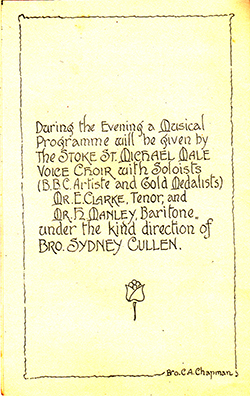 During the Evening a Musical
Programme will be given by
The STOKE ST. MICHAEL MALE
VOICE CHOIR with Soloists
(B.B.C. Artiste and Gold Medalists)
MR. E. CLARKE, Tenor, and
MR. H. MANLEY, Baritone,
under the kind direction of
BRO. SYDNEY CULLEN.
Bro. C.A. Chapman